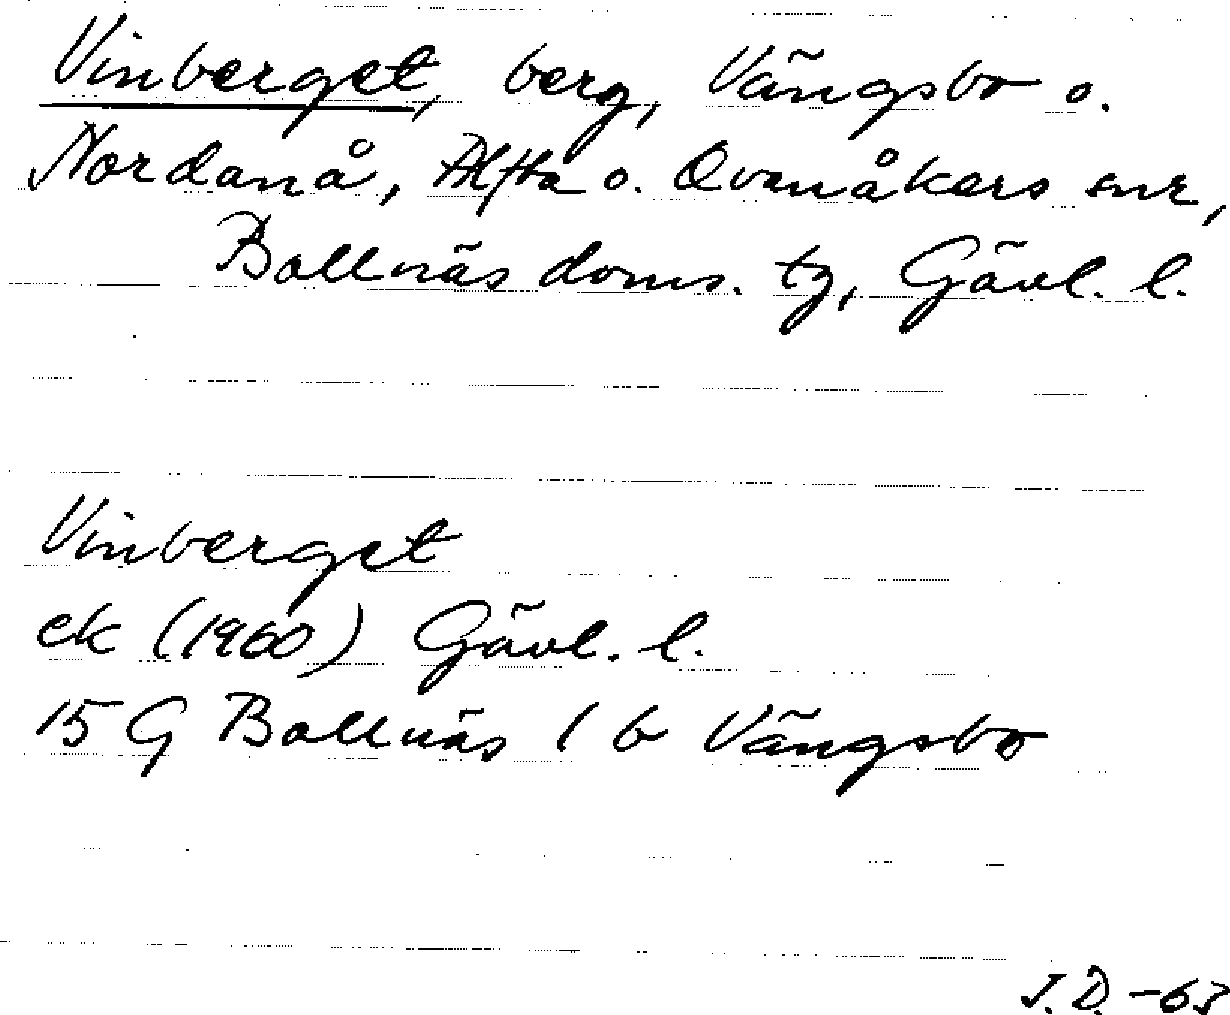 Vinberget, berg, Vängsbo o.
Nordanå, Alfta o. Ovanåkers snr,
Bollnäs doms. tg, Gävl. l.
Vinberget
ek (1960) Gävl. l.
15 G Bollnäs 1 b Vängsbo
J.D. -63